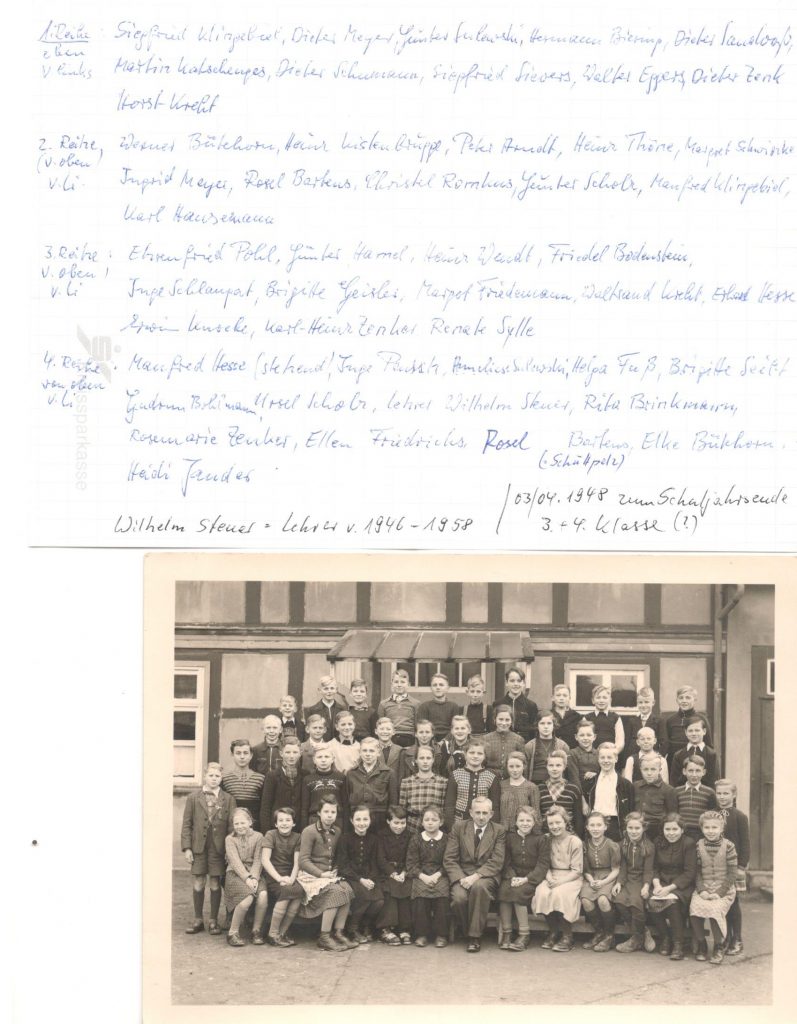 1. Reihe: Siegfried Klingebiel, Dieter Meyer, Günter Sulowski, Hermann Biering, Dieter Sandvoß,
oben
v links Martin Katschenges, Dieter Schumann, Siegfried Sievers, Walter Eggers, Dieter Zenk
Horst Krecht
2. Reihe, Werner Bükhorn, Heinz Kistenbrügge, Peter Arndt, Heinz Thöne, Margret
(v. oben)
v. li. Ingrid Meyer, Rosel Bartens, Christel Günter Scholz, Manfred Klingebiel,
Karl Hansemann
3. Reihe: Ehrenfried Pohl, Günter Hamel, Heinz Wendt, Friedel Bodenstein,
v. oben!
v. li Inge Schlaupat, Brigitte Geisler, Margot Friedemann, Waltraud Krecht, Hesse
Erwin Karl-Heinz Zenker Renate Sylle
4. Reihe: Manfred Hesse (stehend), Inge Sulowski, Helga Fuß, Brigitte
von oben
v. li Gudrun Bohlmann, Ursel Scholz, Lehrer Wilhelm Steuer, Rita Brinkmann,
Rosemarie Zenker, Ellen Friedrichs Rosel Bartens, Elke Bükhorn.
(Schüttpelz)
Heidi Jander
03/04. 1948 zum Schuljahrsende
Wilhelm Steuer = Lehrer v. 1946 - 1958
3. + 4. Klasse (?)
ssparkasse